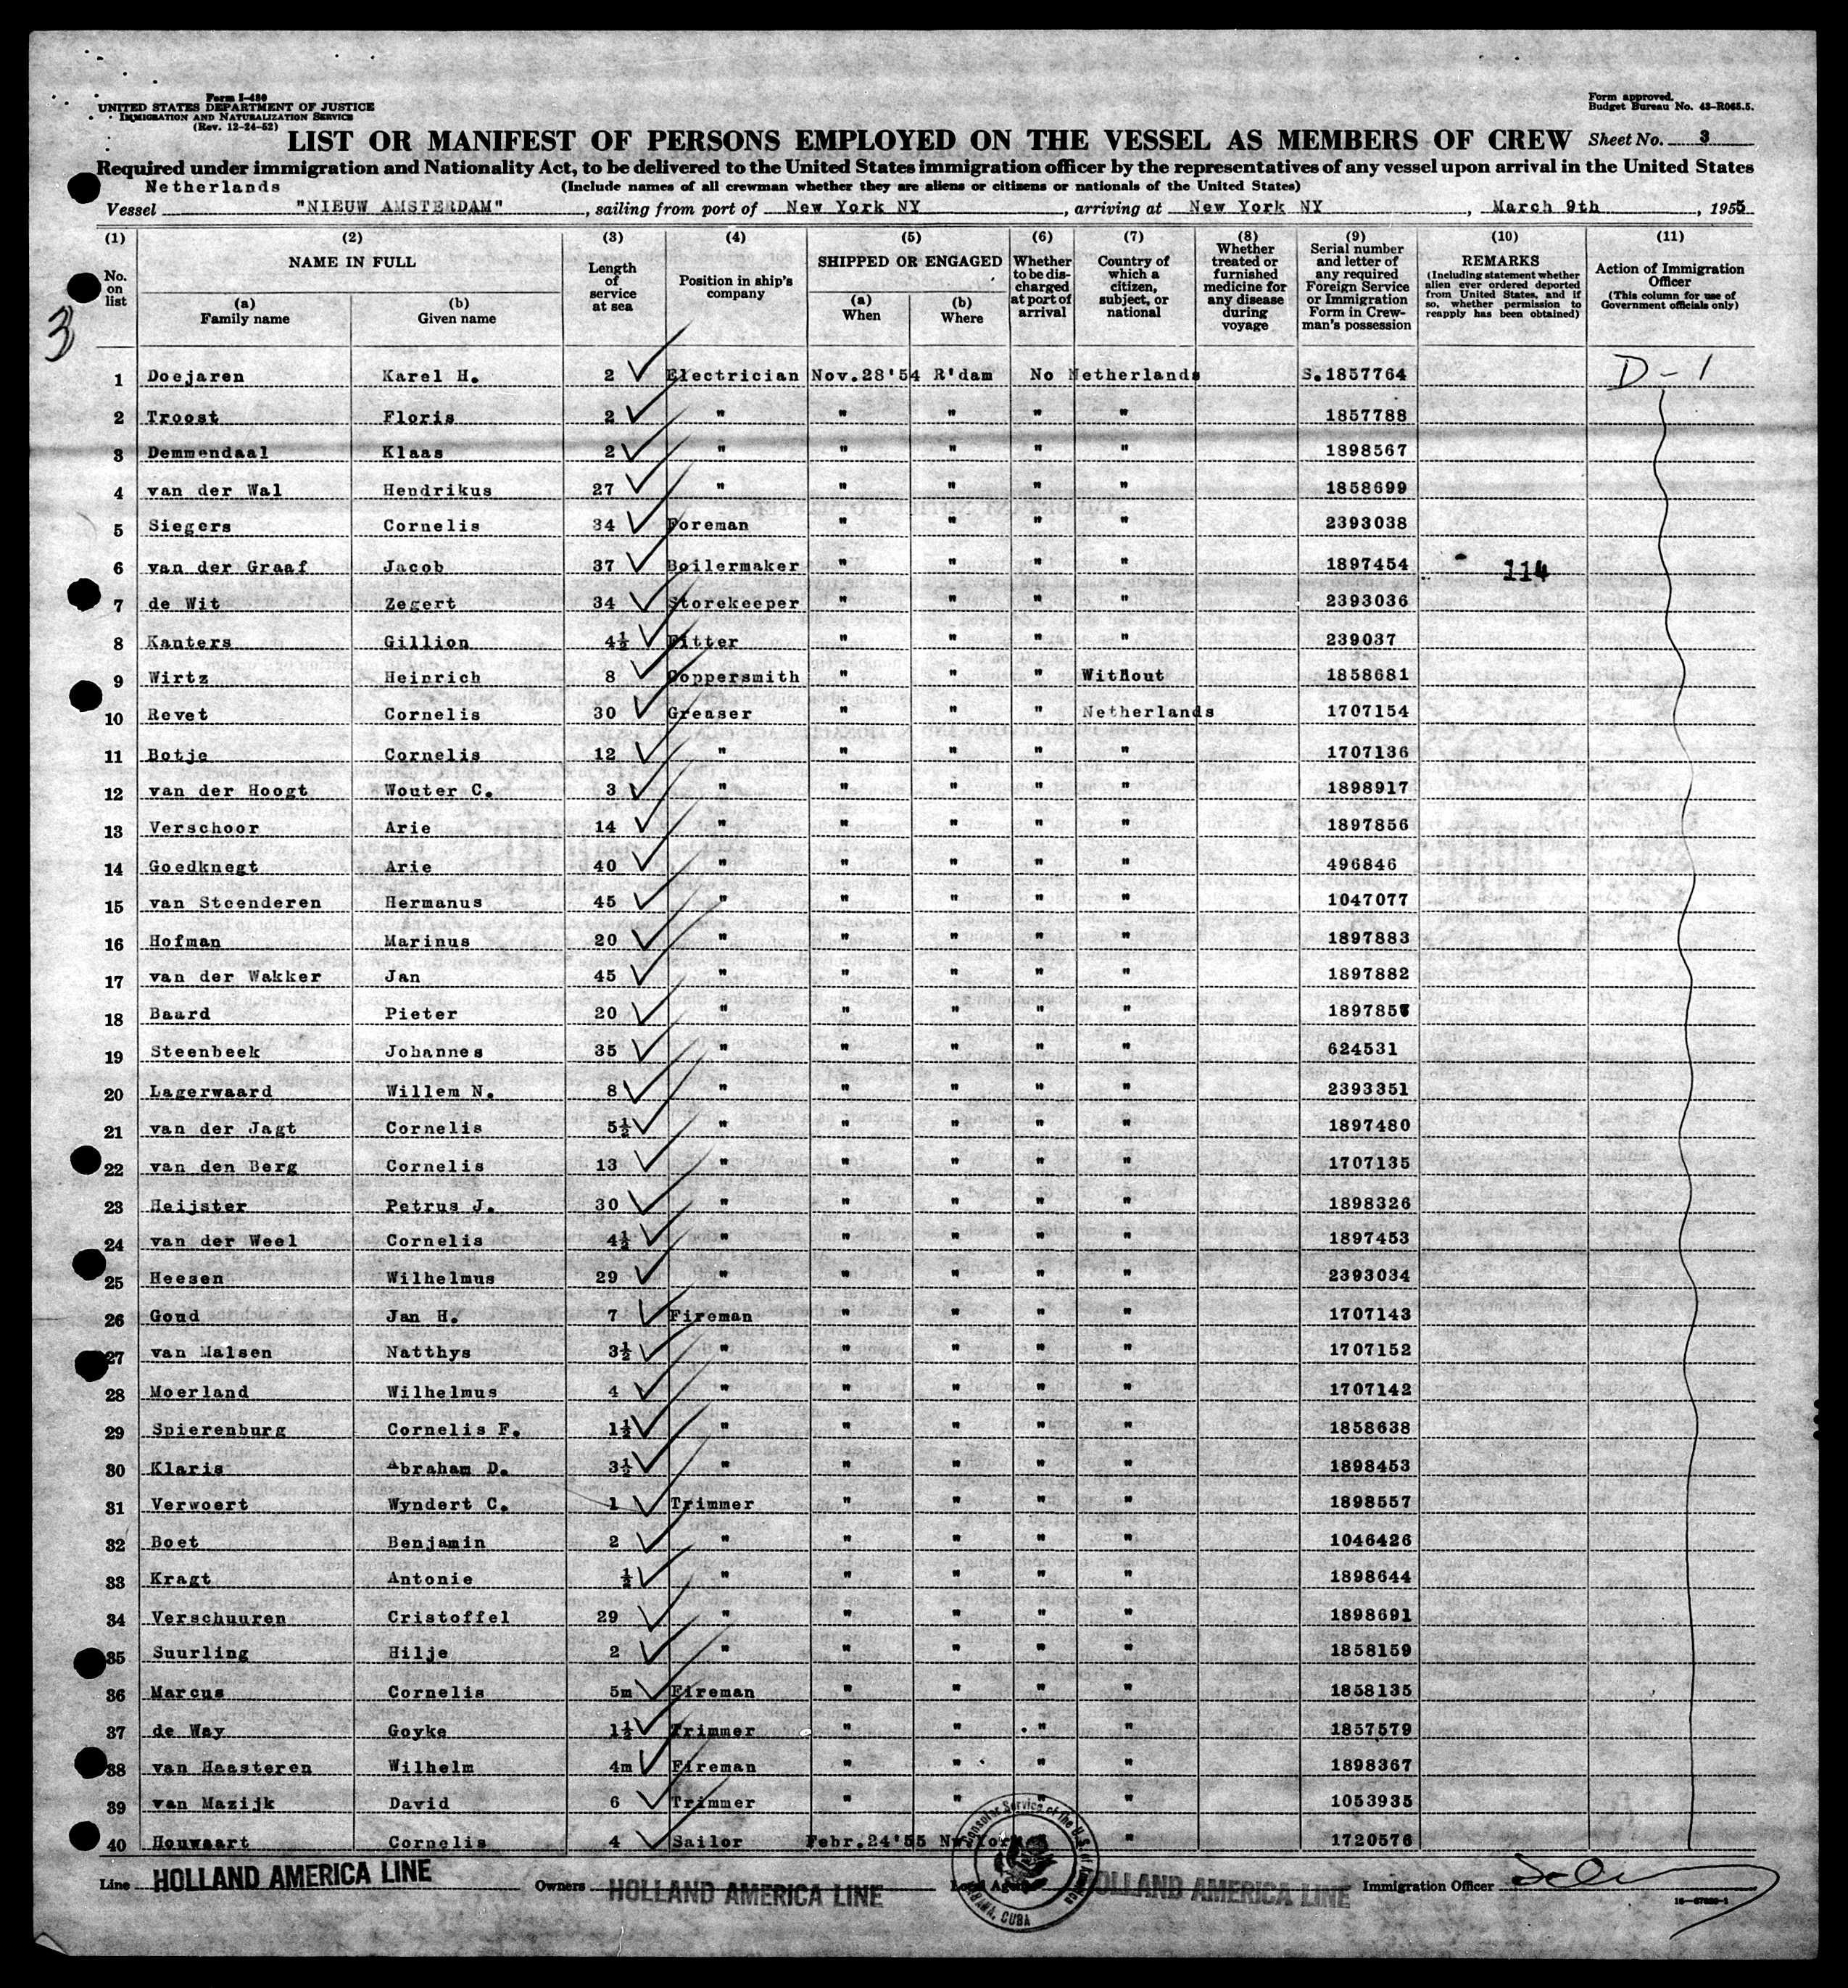 Form I-480
UNITED STATES DEPARTMENT OF JUSTICE
IMMIGRATION AND NATURALIZATION SERVICE
(Rev. 12-24-52)
Form approved.
Budget Bureau No. 43-R065.5.
LIST OR MANIFEST OF PERSONS EMPLOYED ON THE VESSEL AS MEMBERS OF CREW Sheet No. 3
Required under immigration and Nationality Act, to be delivered to the United States immigration officer by the representatives of any vessel upon arrival in the United States
Netherlands (Include names of all crewman whether they are aliens or citizens or nationals of the United States)
Vessel "NIEUW AMSTERDAM", sailing from port of New York NY, arriving at New York NY, March 9th, 1955
(1) (2) (3) (4) (5) (6) (7) (8) (9) (10) (11)
No. on list
NAME IN FULL
(a) Family name
(b) Given name
Length of service at sea
Position in ship's company
SHIPPED OR ENGAGED
(a) When
(b) Where
Whether to be discharged at port of arrival
Country of which a citizen, subject, or national
Whether treated or furnished medicine for any disease during voyage
Serial number and letter of any required Foreign Service or Immigration Form in Crewman's possession
REMARKS
(Including statement whether alien ever ordered deported from United States, and if so, whether permission to reapply has been obtained)
Action of Immigration Officer
(This column for use of Government officials only)
3
1 Doejaren Karel H. 2 Electrician Nov.28'54 R'dam No Netherlands S.1857764 D-1
2 Troost Floris 2 " " " " " 1857788
3 Demmendaal Klaas 2 " " " " " 1898567
4 van der Wal Hendrikus 27 " " " " " 1858699
5 Siegers Cornelis 34 Foreman " " " " 2393038
6 van der Graaf Jacob 37 Boilermaker " " " " 1897454 114
7 de Wit Zegert 34 Storekeeper " " " " 2393036
8 Kanters Gillion 4½ Fitter " " " " 239037
9 Wirtz Heinrich 8 Coppersmith " " " Without 1858681
10 Revet Cornelis 30 Greaser " " " Netherlands 1707154
11 Botje Cornelis 12 " " " " " 1707136
12 van der Hoogt Wouter C. 3 " " " " " 1898917
13 Verschoor Arie 14 " " " " " 1897856
14 Goedknegt Arie 40 " " " " " 496846
15 van Steenderen Hermanus 45 " " " " " 1047077
16 Hofman Marinus 20 " " " " " 1897883
17 van der Wakker Jan 45 " " " " " 1897882
18 Baard Pieter 20 " " " " "
19 Steenbeek Johannes 35 " " " " " 624531
20 Lagerwaard Willem N. 8 " " " " " 2393351
21 van der Jagt Cornelis 5½ " " " " " 1897480
22 van den Berg Cornelis 13 " " " " " 1707135
23 Heijster Petrus J. 30 " " " " " 1898326
24 van der Weel Cornelis 4½ " " " " " 1897453
25 Heesen Wilhelmus 29 " " " " " 2393034
26 Goud Jan H. 7 Fireman " " " " 1707143
27 van Malsen Natthys 3½ " " " " " 1707152
28 Moerland Wilhelmus 4 " " " " " 1707142
29 Spierenburg Cornelis F. 1½ " " " " " 1858638
30 Klaris Abraham D. 3½ " " " " " 1898453
31 Verwoert Wyndert C. 1 Trimmer " " " " 1898557
32 Boet Benjamin 2 " " " " " 1046426
33 Kragt Antonie ½ " " " " " 1898644
34 Verschuuren Cristoffel 29 " " " " " 1898691
35 Suurling Hilje 2 " " " " " 1858159
36 Marcus Cornelis 5m Fireman " " " " 1858135
37 de Way Goyke 1½ Trimmer " " " " 1857579
38 van Haasteren Wilhelm 4m Fireman " " " " 1898367
39 van Mazijk David 6 Trimmer " " " " 1053935
40 Houwaart Cornelis 4 Sailor Febr.24'55 NwYork " " 1720576
Line HOLLAND AMERICA LINE Owners HOLLAND AMERICA LINE Local Agents HOLLAND AMERICA LINE Immigration Officer
Consular Service of the U.S. of America
HABANA, CUBA